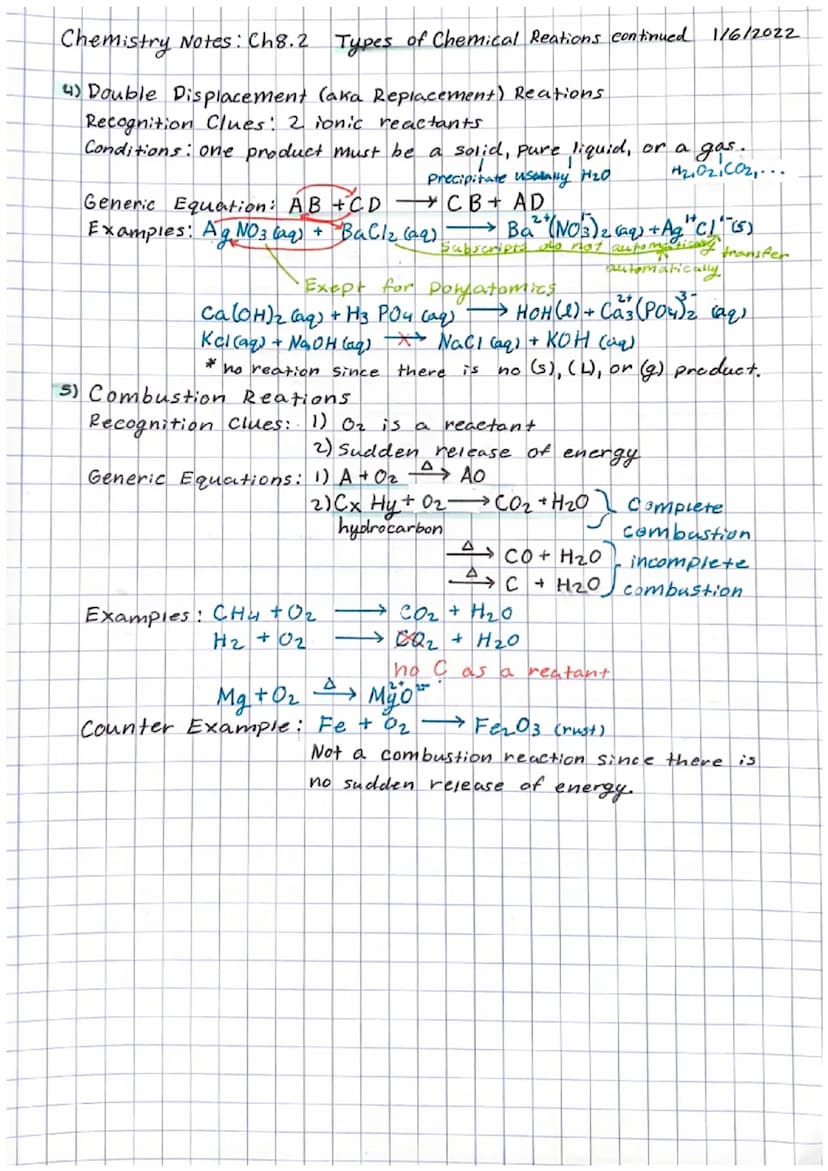 Chemistry Notes: Ch8.2 Types of Chemical Reations continued 1/6/2022
4) Double Displacement (aka Replacement) Reations
Recognition Clues: 2 ionic reactants
Conditions: one product must be a solid, pure liquid, or a gas.
Precipitate usually H2O H2, O2, CO2, ...
Generic Equation: AB + CD → CB + AD
Examples: AgNO3 (aq) + BaCl2 (aq) → Ba²⁺(NO3¹⁻)2 (aq) + Ag¹⁺Cl¹⁻(s)
Subscripts do not transfer
automatically
Exept for polyatomics
Ca(OH)2 (aq) + H3 PO4 (aq) → HOH(l) + Ca3²⁺(PO4)2³⁻ (aq)
KCl (aq) + NaOH (aq) → NaCl (aq) + KOH (aq)
* no reation since there is no (s), (L), or (g) product.
5) Combustion Reations
Recognition Clues: 1) O2 is a reactant
2) Sudden release of energy
Generic Equations: 1) A + O2 Δ→ AO
2) Cx Hy + O2 → CO2 + H2O } Complete
hydrocarbon combustion
Δ→ CO + H2O } incomplete
Δ→ C + H2O combustion
Examples: CH4 + O2 → CO2 + H2O
H2 + O2 → CO2 + H2O
no C as a reatant
Mg + O2 Δ→ Mg²⁺O²⁻
Counter Example: Fe + O2 → Fe2O3 (rust)
Not a combustion reaction since there is
no sudden release of energy.